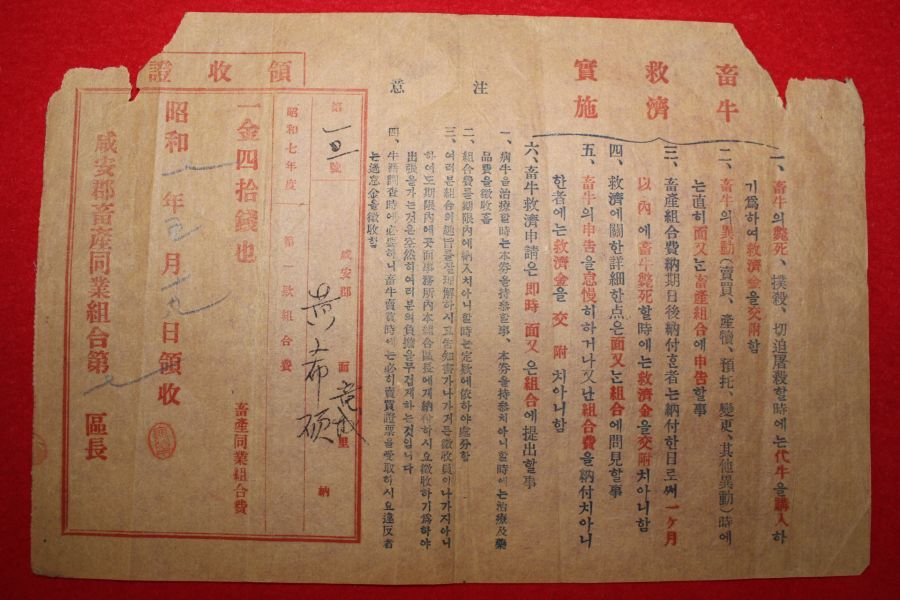 畜牛
救濟
實施
一、畜牛의斃死、撲殺、切迫屠殺할時에는代牛을購入하
기爲하여救濟金을交附함
二、畜牛의異動(賣買、產犢、預托、變更、其他異動)時에
는直히面又는畜產組合에申告할事
三、畜產組合費納期日後納付한者는納付한日로써一ケ月
以內에畜牛斃死할時에는救濟金을交附치아니함
四、救濟에關한詳細한点은面又는組合에問見할事
五、畜牛의申告을怠慢히하거나又난組合費을納付치아니
한者에는救濟金을交附치아니함
六、畜牛救濟申請은即時面又은組合에提出할事
注意
一、病牛을治療할時는本券을持參할事、本券을持參치아니할時에는治療及藥
品費을徵收홈
二、組合費를期限內에納入치아니할時는定欵에依하야處分함
三、여러분組合의趣旨를잘理解하시고告知書가나가지든徵收員이나가지아니
하여도期限內에곳面事務所內本組合區長에게納付하시요徵收하기爲하야
出張을가는것은空然히여러분의負擔을무겁게하는것입니다
四、牛籍調査時에必要하니畜牛賣買時에는必히賣買證票을受取하시요違反者
는過怠金을徵收함
領收證
第 號
咸安郡 面 里
黃 希 碩 納
昭和七年度 第一欵組合費
畜產同業組合費
一金四拾錢也
昭和 年 月 日領收
咸安郡畜產同業組合第 區長